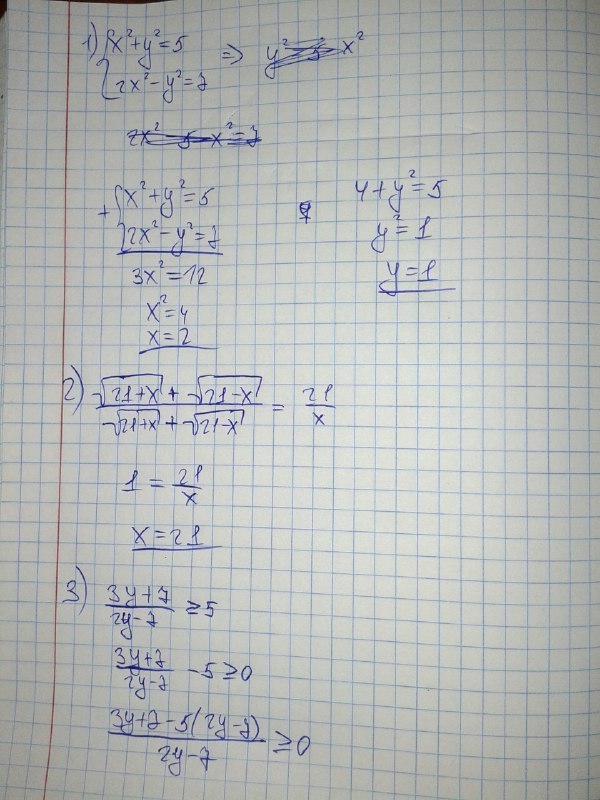 1) { x²+y²=5 ⇒
2x²-y²=7
+ { x²+y²=5
2x²-y²=7
3x²=12
x²=4
x=2
4+y²=5
y²=1
y=1
2) (√(21+x) + √(21-x)) / (√(21+x) + √(21-x)) = 21/x
1 = 21/x
x=21
3) (3y+7)/(2y-7) ≥5
(3y+7)/(2y-7) -5≥0
(3y+7-5(2y-7))/(2y-7) ≥0